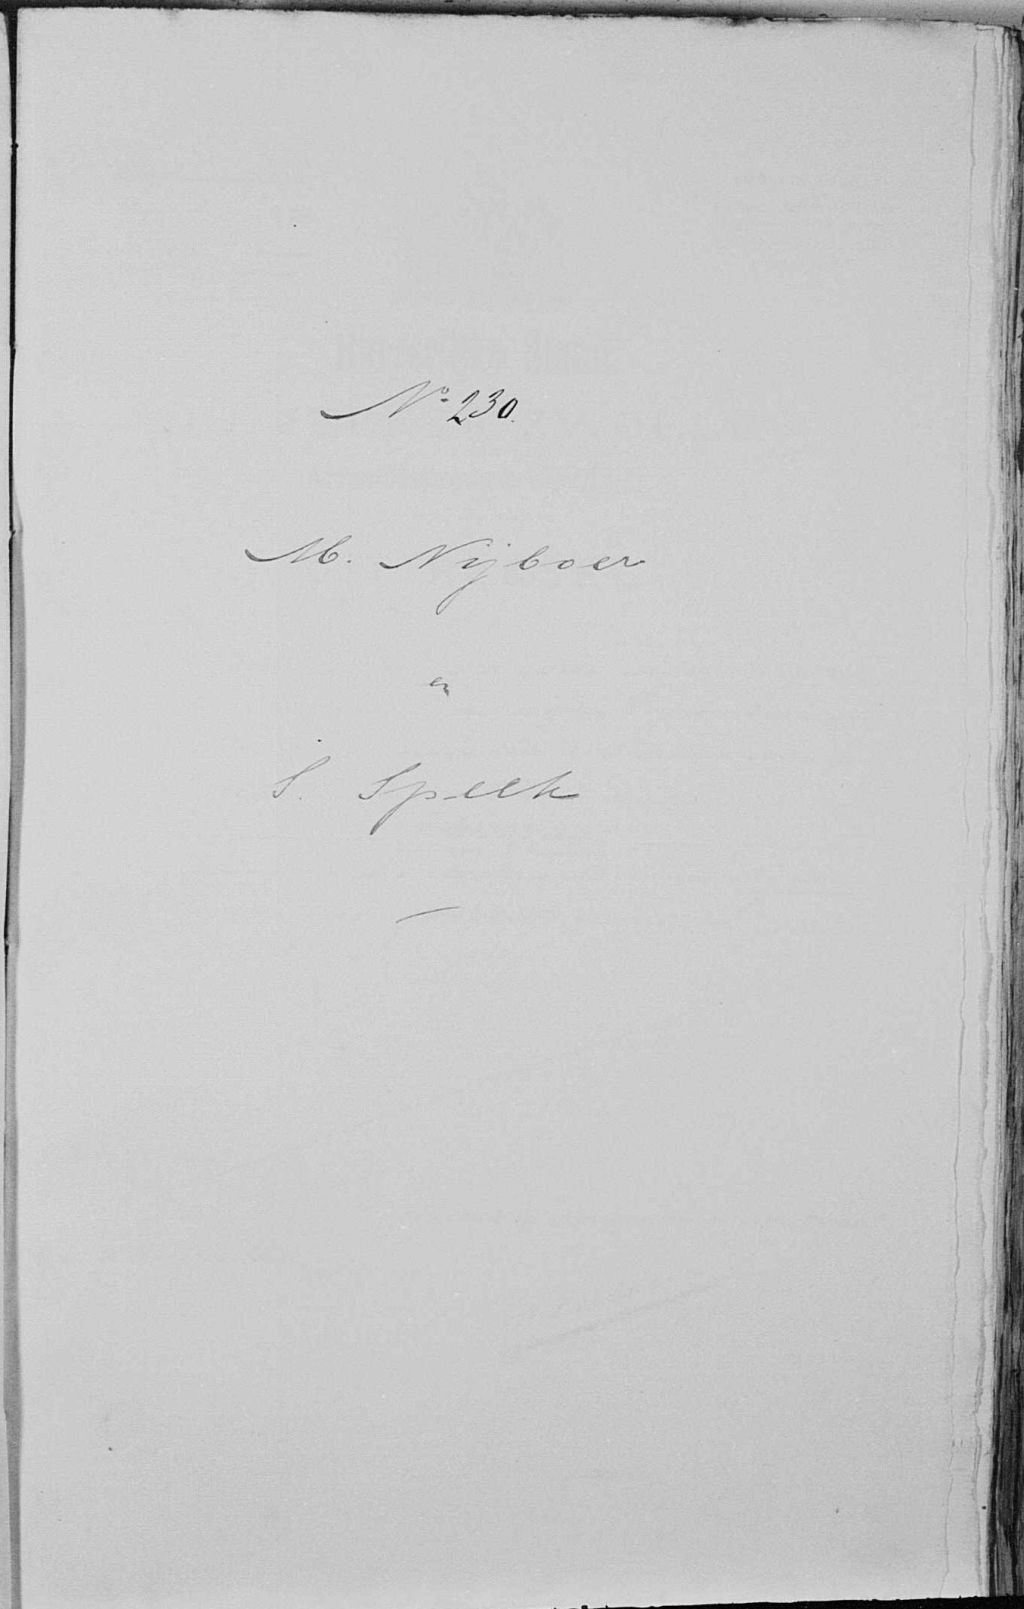 No. 230.
M. Nijboer
en
S. Speek